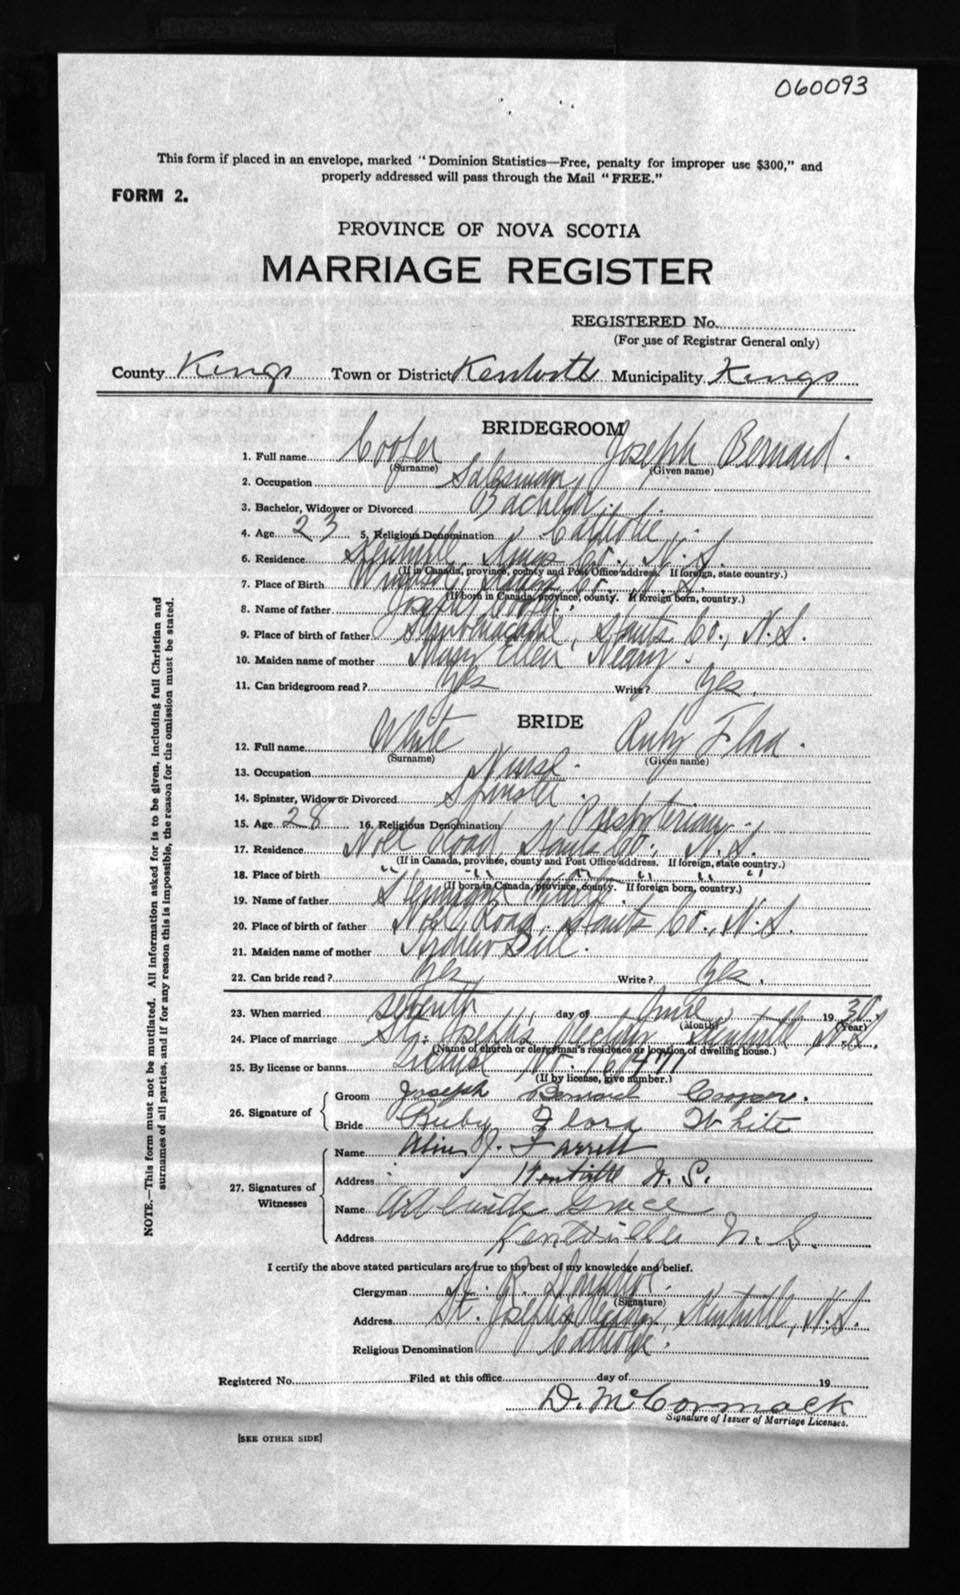 060093
This form if placed in an envelope, marked "Dominion Statistics—Free, penalty for improper use $300," and
properly addressed will pass through the Mail "FREE."
FORM 2.
PROVINCE OF NOVA SCOTIA
MARRIAGE REGISTER
REGISTERED No.
(For use of Registrar General only)
County Kings Town or District Kentville Municipality Kings
BRIDEGROOM
1. Full name Cooper Joseph Bernard.
(Surname) (Given name)
2. Occupation Salesman
3. Bachelor, Widower or Divorced Bachelor
4. Age 23 5. Religious Denomination Catholic
6. Residence Kentville Kings Co., N.S.
(If in Canada, province, county and Post Office address. If foreign, state country.)
7. Place of Birth Windsor, Hants Co., N.S.
(If born in Canada, province, county. If foreign born, country.)
8. Name of father Joseph
9. Place of birth of father Shubenacadie, Hants Co., N.S.
10. Maiden name of mother Mary Ellen Neary.
11. Can bridegroom read? Yes Write? Yes.
BRIDE
12. Full name White Ruby Flora.
(Surname) (Given name)
13. Occupation Nurse.
14. Spinster, Widow or Divorced Spinster.
15. Age 28 16. Religious Denomination Presbyterian.
17. Residence Noel Road, Hants Co., N.S.
(If in Canada, province, county and Post Office address. If foreign, state country.)
18. Place of birth " " " " "
(If born in Canada, province, county. If foreign born, country.)
19. Name of father White
20. Place of birth of father Noel Road, Hants Co., N.S.
21. Maiden name of mother Dill.
22. Can bride read? Yes Write? Yes.
23. When married seventh day of June 1930.
(Month) (Year)
24. Place of marriage St. Joseph's Rectory Kentville N.S.
(Name of church or clergyman's residence or location of dwelling house.)
25. By license or banns License No.
(If by license, give number.)
26. Signature of Groom Joseph Bernard Cooper.
Bride Ruby Flora White
27. Signatures of Witnesses Name J. Farrell
Address Kentville N.S.
Name Grace
Address Kentville N.S.
I certify the above stated particulars are true to the best of my knowledge and belief.
Clergyman
(Signature)
Address St. Joseph's Rectory, Kentville, N.S.
Religious Denomination Catholic.
Registered No. Filed at this office day of 19
D. McCormack
Signature of Issuer of Marriage Licenses.
[SEE OTHER SIDE]
NOTE.—This form must not be mutilated. All information asked for is to be given, including full Christian and
surnames of all parties, and if for any reason this is impossible, the reason for the omission must be stated.